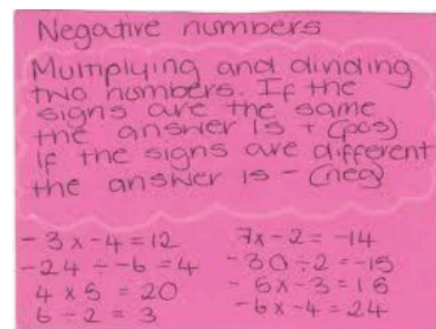 Negative numbers
Multiplying and dividing
two numbers. If the
signs are the same
the answer is + (pos)
If the signs are different
the answer is - (neg)
-3 x -4 = 12 7x -2 = -14
-24 ÷ -6 = 4 -30 ÷ 2 = -15
4 x 5 = 20 -5x -3 = 15
6 ÷ 2 = 3 -6x -4 = 24